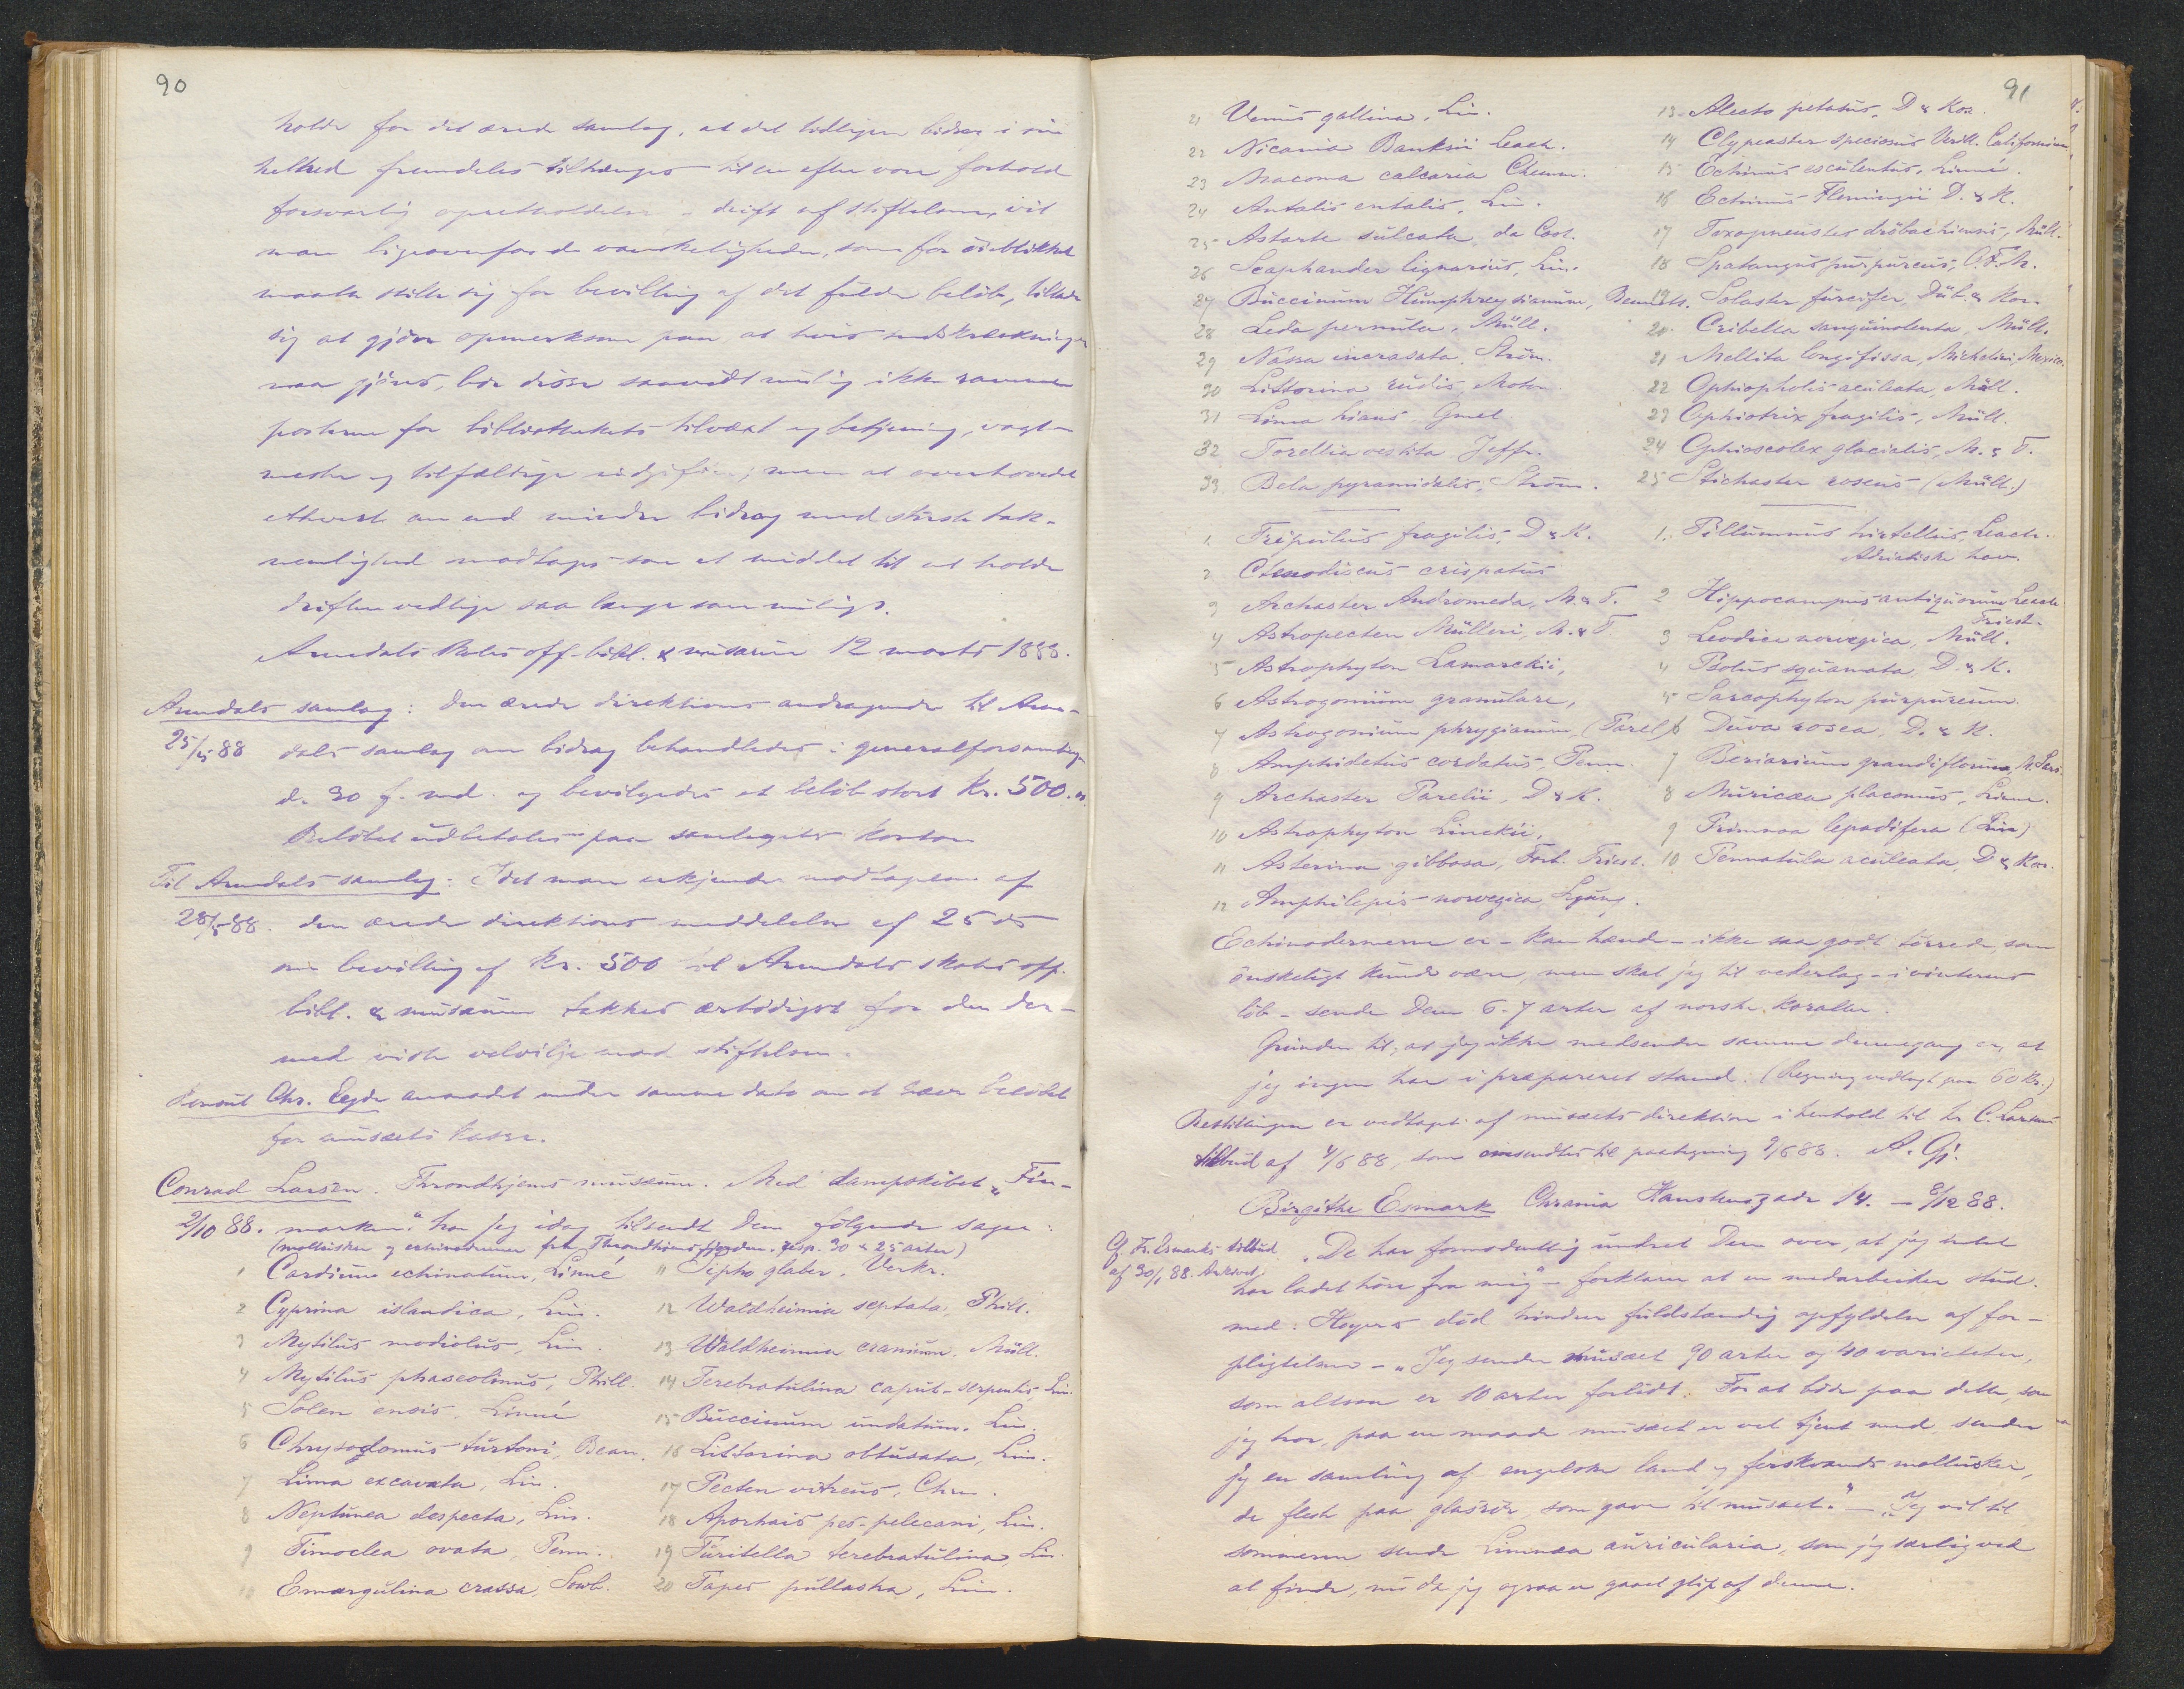 90
holde for det ærede samlag, at det tidligere bidrag i sin
helhed fremdeles tiltrænges til en efter vore forhold
forsvarlig opretholdelse & drift af stiftelsen, vil
man ligeoverfor de vanskeligheder, som for öieblikket
maatte stille sig for bevilling af det fulde belöb, tillade
sig at gjöre opmerksom paa at hvis indskrænkninger
maa gjöres, bör disse saavidt mulig ikke ramme
posterne for bibliothekets tilvæxt og betjening, vagt-
mester og tilfældige udgifter; men at overhovedet
ethvert om end mindre bidrag med störste tak-
nemlighed modtages som et middel til at holde
driften vedlige saa længe som muligt.
Arendals Skoles off. bibl. & musæum 12 marts 1888.
Arendals samlag: Den ærede direktions andragende til Aren-
25/5 88 dals samlag om bidrag behandledes i generalforsamling
d. 30 f. md. og bevilgedes et belöb stort Kr. 500.
Belöbet udbetales paa samlagets kontor
Til Arendals samlag: Idet man erkjender modtagelsen af
28/5 88. den ærede direktions meddelelse af 25 ds
om bevilling af Kr. 500 til Arendals skoles off.
bibl. & musæum takkes ærbödigst for den der-
med viste velvilje mod stiftelsen.
Konsul Chr. Eyde anmodet under samme dato om at hæve belöbet
for musæets kasse.
Conrad Larsen. Throndhjems musæum. Med dampskibet „Fin-
2/10 88. marken“ har jeg idag tilsendt Dem fölgende sager:
(mollusker og echinodermer fra Throndhjemsfjorden, resp. 30 & 25 arter)
1 Cardium echinatum, Linné
2 Cyprina islandica, Lin.
3 Mytilus modiolus, Lin.
4 Mytilus phaseolinus, Phill.
5 Solen ensis, Linné
6 Chrysodomus turtoni, Bean.
7 Lima excavata, Lin.
8 Neptunea despecta, Lin.
9 Timoclea ovata, Penn.
10 Emargulina crassa, Sowb.
11 Sipho glaber, Verkr.
12 Waldheimia septata, Phill.
13 Waldheimia cranium, Müll.
14 Terebratulina caput-serpentis, Lin.
15 Buccinum undatum, Lin.
16 Littorina obtusata, Lin.
17 Pecten vitreus, Chm.
18 Aporhais pes-pelecani, Lin.
19 Turitella terebratulina Lin.
20 Tapes pullastra, Lin.
91
21 Venus gallina, Lin.
22 Nicania Banksii Leach.
23 Macoma calcaria Chemn.
24 Antalis entalis, Lin.
25 Astarte sulcata, da Cost.
26 Scaphander lignarius, Lin.
27 Buccinum Humphreysianum, Bennets.
28 Leda pernula, Müll.
29 Nassa incrasata, Ström.
30 Littorina rudis, Maton.
31 Lima hians Gmel.
32 Torellia vestita Jeffr.
33 Bela pyramidalis, Ström.
1. Tripulus fragilis, D & K.
2 Ctenodiscus crispatus
3 Archaster Andromeda, M. & T.
4 Astropecten Mülleri, M. & T
5 Astrophyton Lamarckii,
6 Astrogonium granulare,
7 Astrogonium phrygianum, (Parel
8 Amphidetus cordatus, Penn.
9 Archaster Parelii, D & K.
10 Astrophyton Linckii,
11 Asterina gibbosa, Forb. Triest.
12 Amphilepis norvegica Ljung.
13. Alecto petasus, D & Kor.
14 Clypeaster speciosus Verill. Californien
15 Echinus esculentus, Linné.
16 Echinus Flemingii D. & K.
17 Toxopneustes dröbachiensis, Müll.
18 Spatangus purpureus, O. F. M.
19. Solaster furcifer, Düb. & Kor.
20. Cribella sanguinolenta, Müll.
21 Mellita longifissa, Michelini, Mexico.
22 Ophiopholis aculeata, Müll.
23 Ophiotrix fragilis, Müll.
24 Ophioscolex glacialis, M. & T.
25 Stichaster roseus (Müll.)
1. Pillumnus hirtellus, Leach.
Adriatiske hav.
2 Hippocampus antiquorum Leach
Triest.
3 Leodice norvegica, Müll.
4 Psolus squamata, D. & K.
5 Sarcophyton purpureum.
6 Duva rosea, D. & K.
7 Briarium grandiflorum, M. Sars.
8 Muricæa placomus, Linn.
9 Primnoa lepadifera (Lin)
10 Pennatula aculeata, D & Kor.
Echinodermerne er - kan hænde - ikke saa godt törrede, som
önskeligt kunde være, men skal jeg til vederlag - i vinterens
löb - sende Dem 6-7 arter af norske koraller.
Grunden til, at jeg ikke medsender samme dennegang er, at
jeg ingen har i præpareret stand. (Regning vedlagt paa 60 Kr.)
Bestillingen er vedtaget af musæets direktion i henhold til hr C. Larsens
tilbud af 4/6 88, som omsendtes til paategning 9/6 88. A. Gj.
Birgithe Esmark Chrania Hanstensgade 14. - 8/12 88.
Cf. Fr. Esmarks tilbud
af 30/1 88. Arkivet.
„De har formodentlig undret Dem over, at jeg intet
har ladet höre fra mig“ - forklarer at en medarbeider stud.
med. Hoyers död hindrer fuldstændig opfyldelse af for-
pligtelsen - „Jeg sender musæet 90 arter og 40 varieteter,
som altsaa er 10 arter forlidt. For at böde paa dette, som
jeg tror, paa en maade musæet er vel tjent med, sender
jeg en samling af engelske land og ferskvands mollusker,
de fleste paa glasrör, som gave til musæet.“ - „Jeg vil til
sommeren sende Limnæa auricularia, som jeg særlig ved
at finde, nu da jeg ogsaa er gaaet glip af denne.